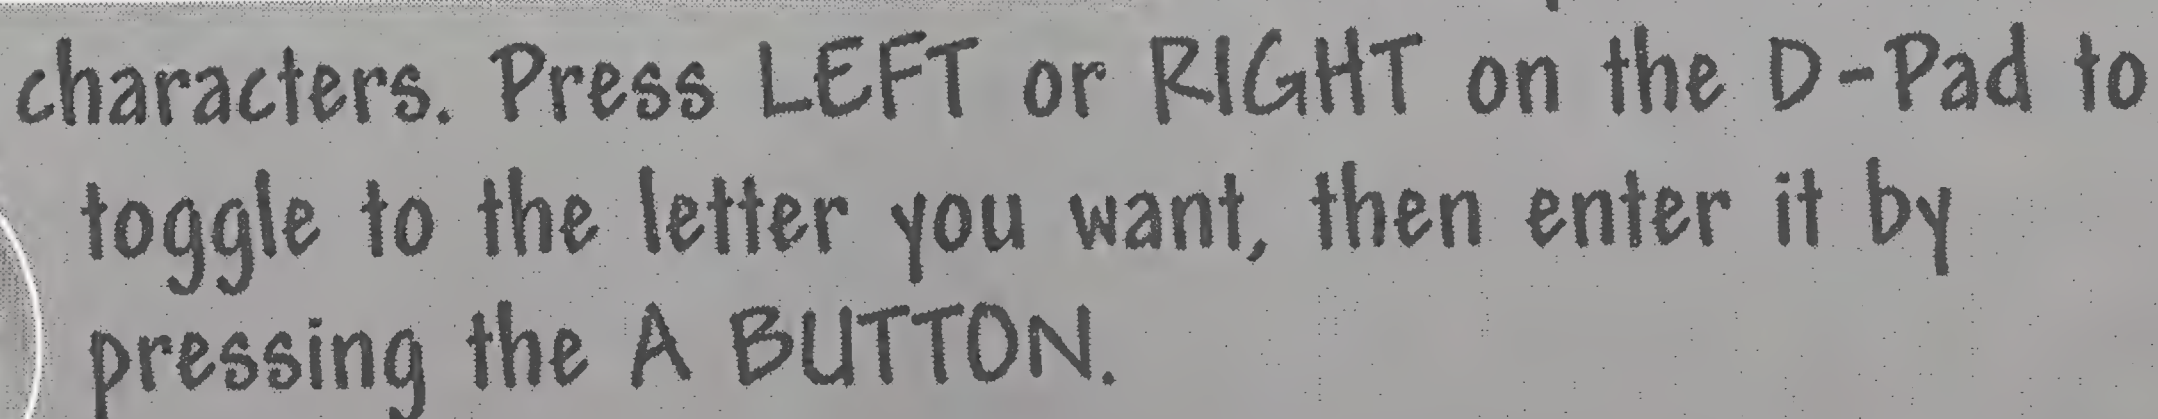 characters. Press LEFT or RIGHT on the D-Pad to
toggle to the letter you want, then enter it by
pressing the A BUTTON.